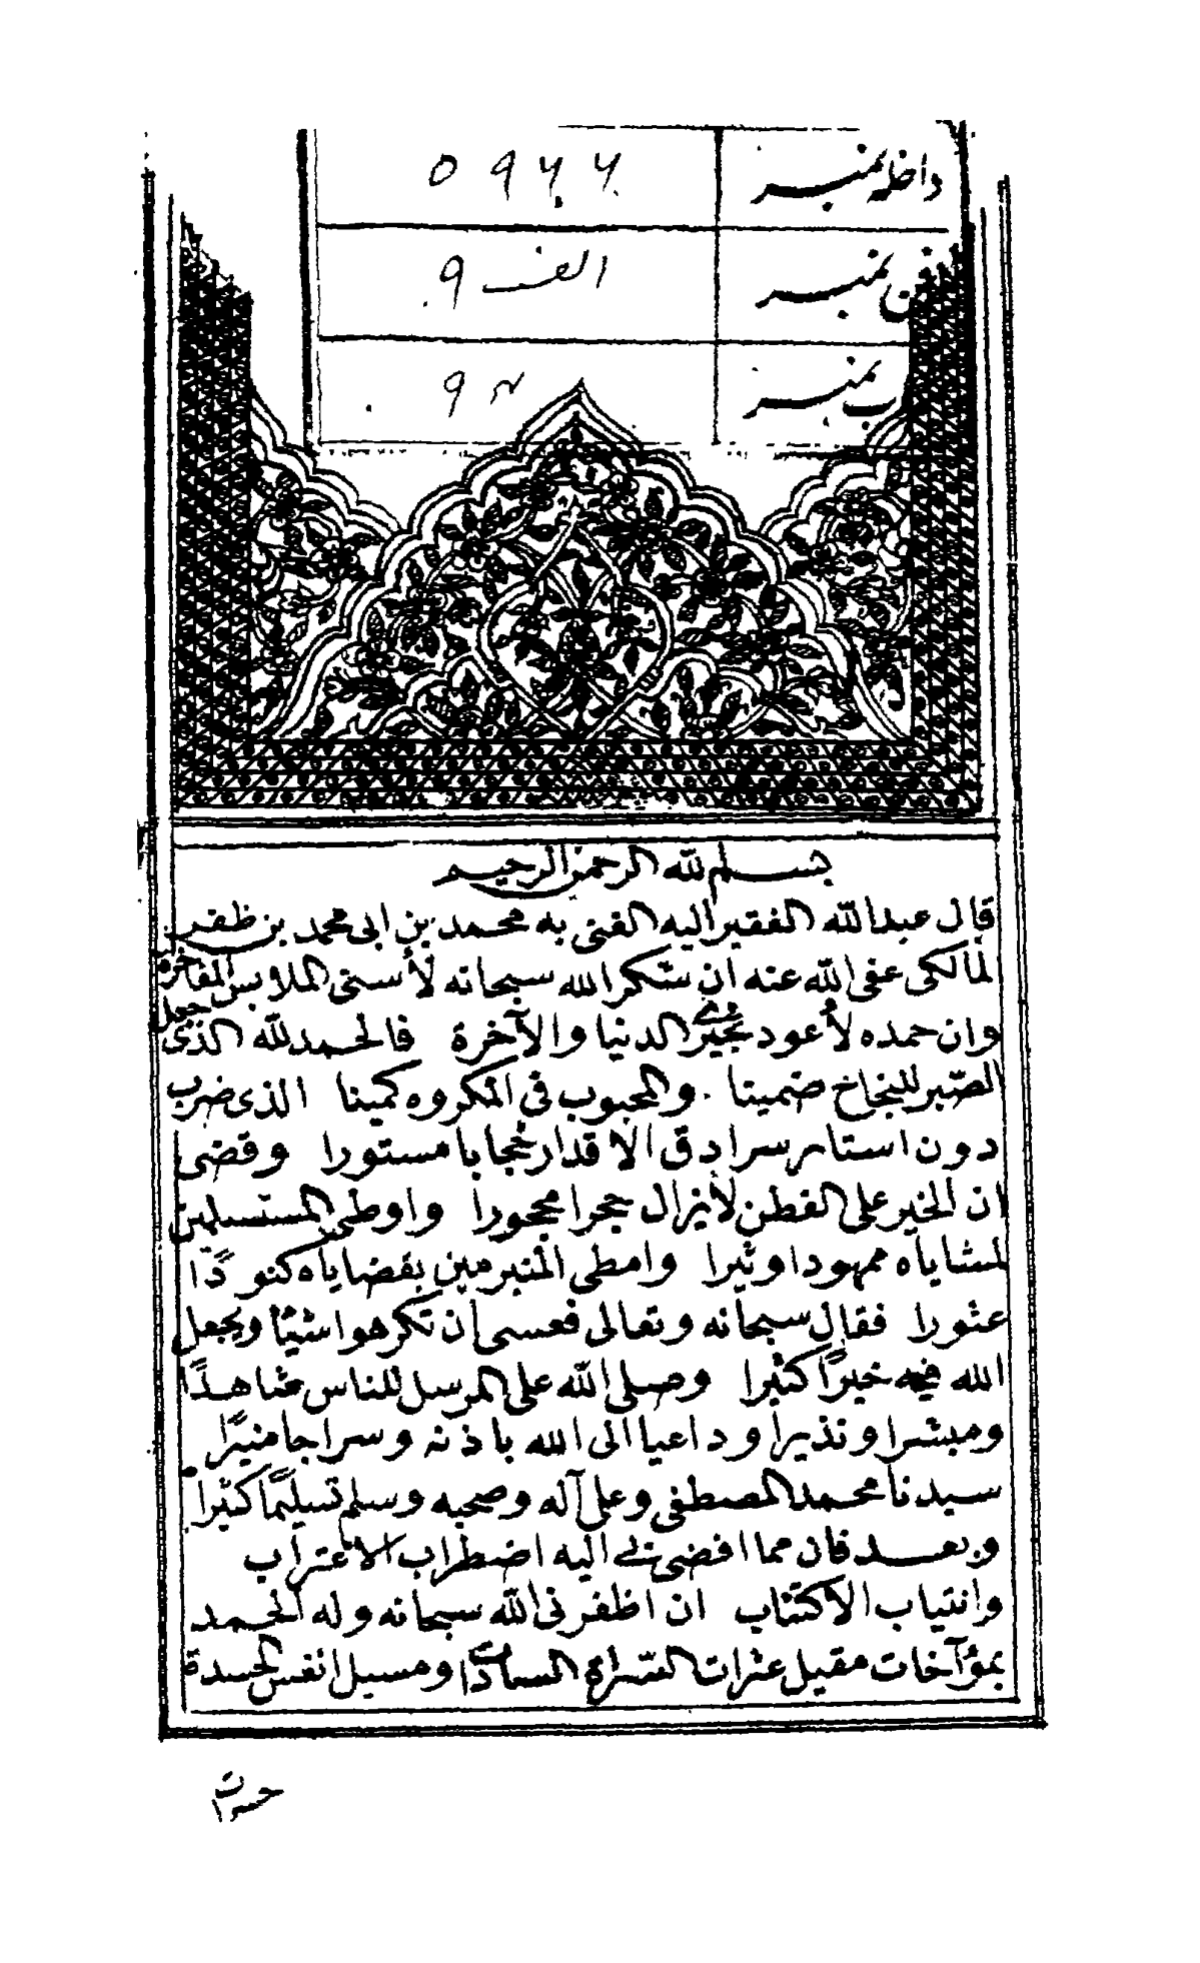 داخلہ نمبر ۵۹۶۶
فن نمبر الف ۹
ب نمبر ۹۴
بسم الله الرحمن الرحيم
قال عبد الله الفقير اليه الغنى به محمد بن ابى محمد بن ظفر
المالكى عفى الله عنه ان شكر الله سبحانه لأسنى الملابس الفاخره
وان حمده لأعود بخيرى الدنيا والآخرة فالحمد لله الذى جعل
الصبر للنجاح ضمينا والمحبوب فى المكروه كمينا الذى ضرب
دون استار سرادق الاقدار حجابا مستورا وقضى
ان الخير على الفطن لأيزال حجرا محجورا واوطى المستسلمين
لمشاياه ممهودا وثيرا وامطى المتبرمين بقضاياه كنودًا
عثورا فقال سبحانه وتعالى فعسى أن تكرهوا شيئا ويجعل
الله فيه خيرًا كثيرا وصلى الله على المرسل للناس شاهدًا
ومبشرا ونذيرا وداعيا الى الله باذنه وسراجا منيرًا
سيدنا محمد المصطفى وعلى آله وصحبه وسلم تسليمًا كثيرا
وبعد فان مما افضى بى اليه اضطراب الاغتراب
وانتياب الاكتئاب ان اظفرنى الله سبحانه وله الحمد
بمؤآخات مقيل عثرات السراة السادات ومسيل انفس الحسدة
حسرات